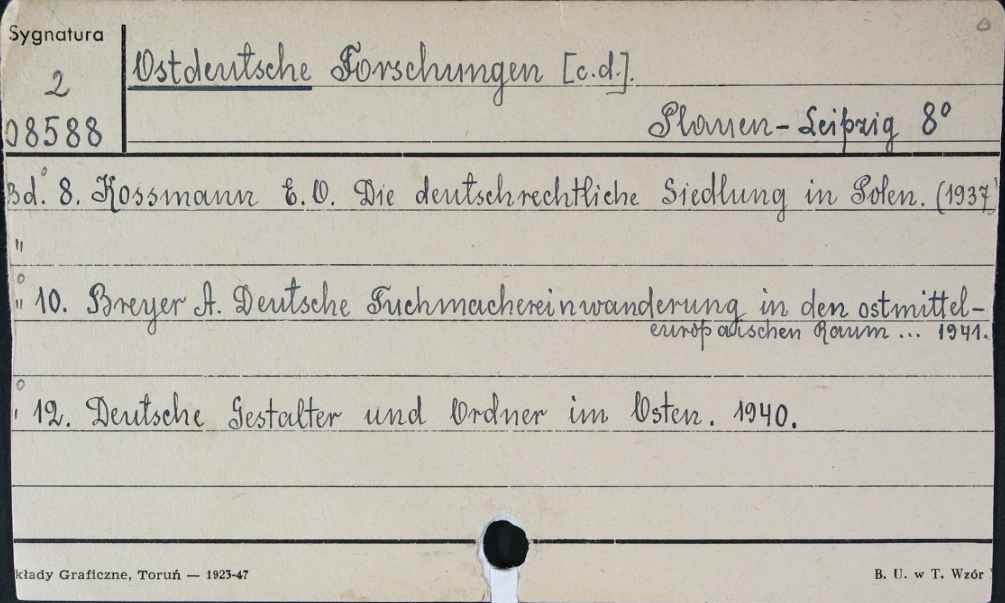 Sygnatura
2
08588
Ostdeutsche Forschungen [c.d.].
Plauen-Leipzig 8°
Bd. 8. Kossmann E. O. Die deutschrechtliche Siedlung in Polen. (1937)
"
" 10. Breyer A. Deutsche Tuchmachereinwanderung in den ostmittel-
europäischen Raum ... 1941.
" 12. Deutsche Gestalter und Ordner im Osten. 1940.
kłady Graficzne, Toruń — 1923-47
B. U. w T. Wzór